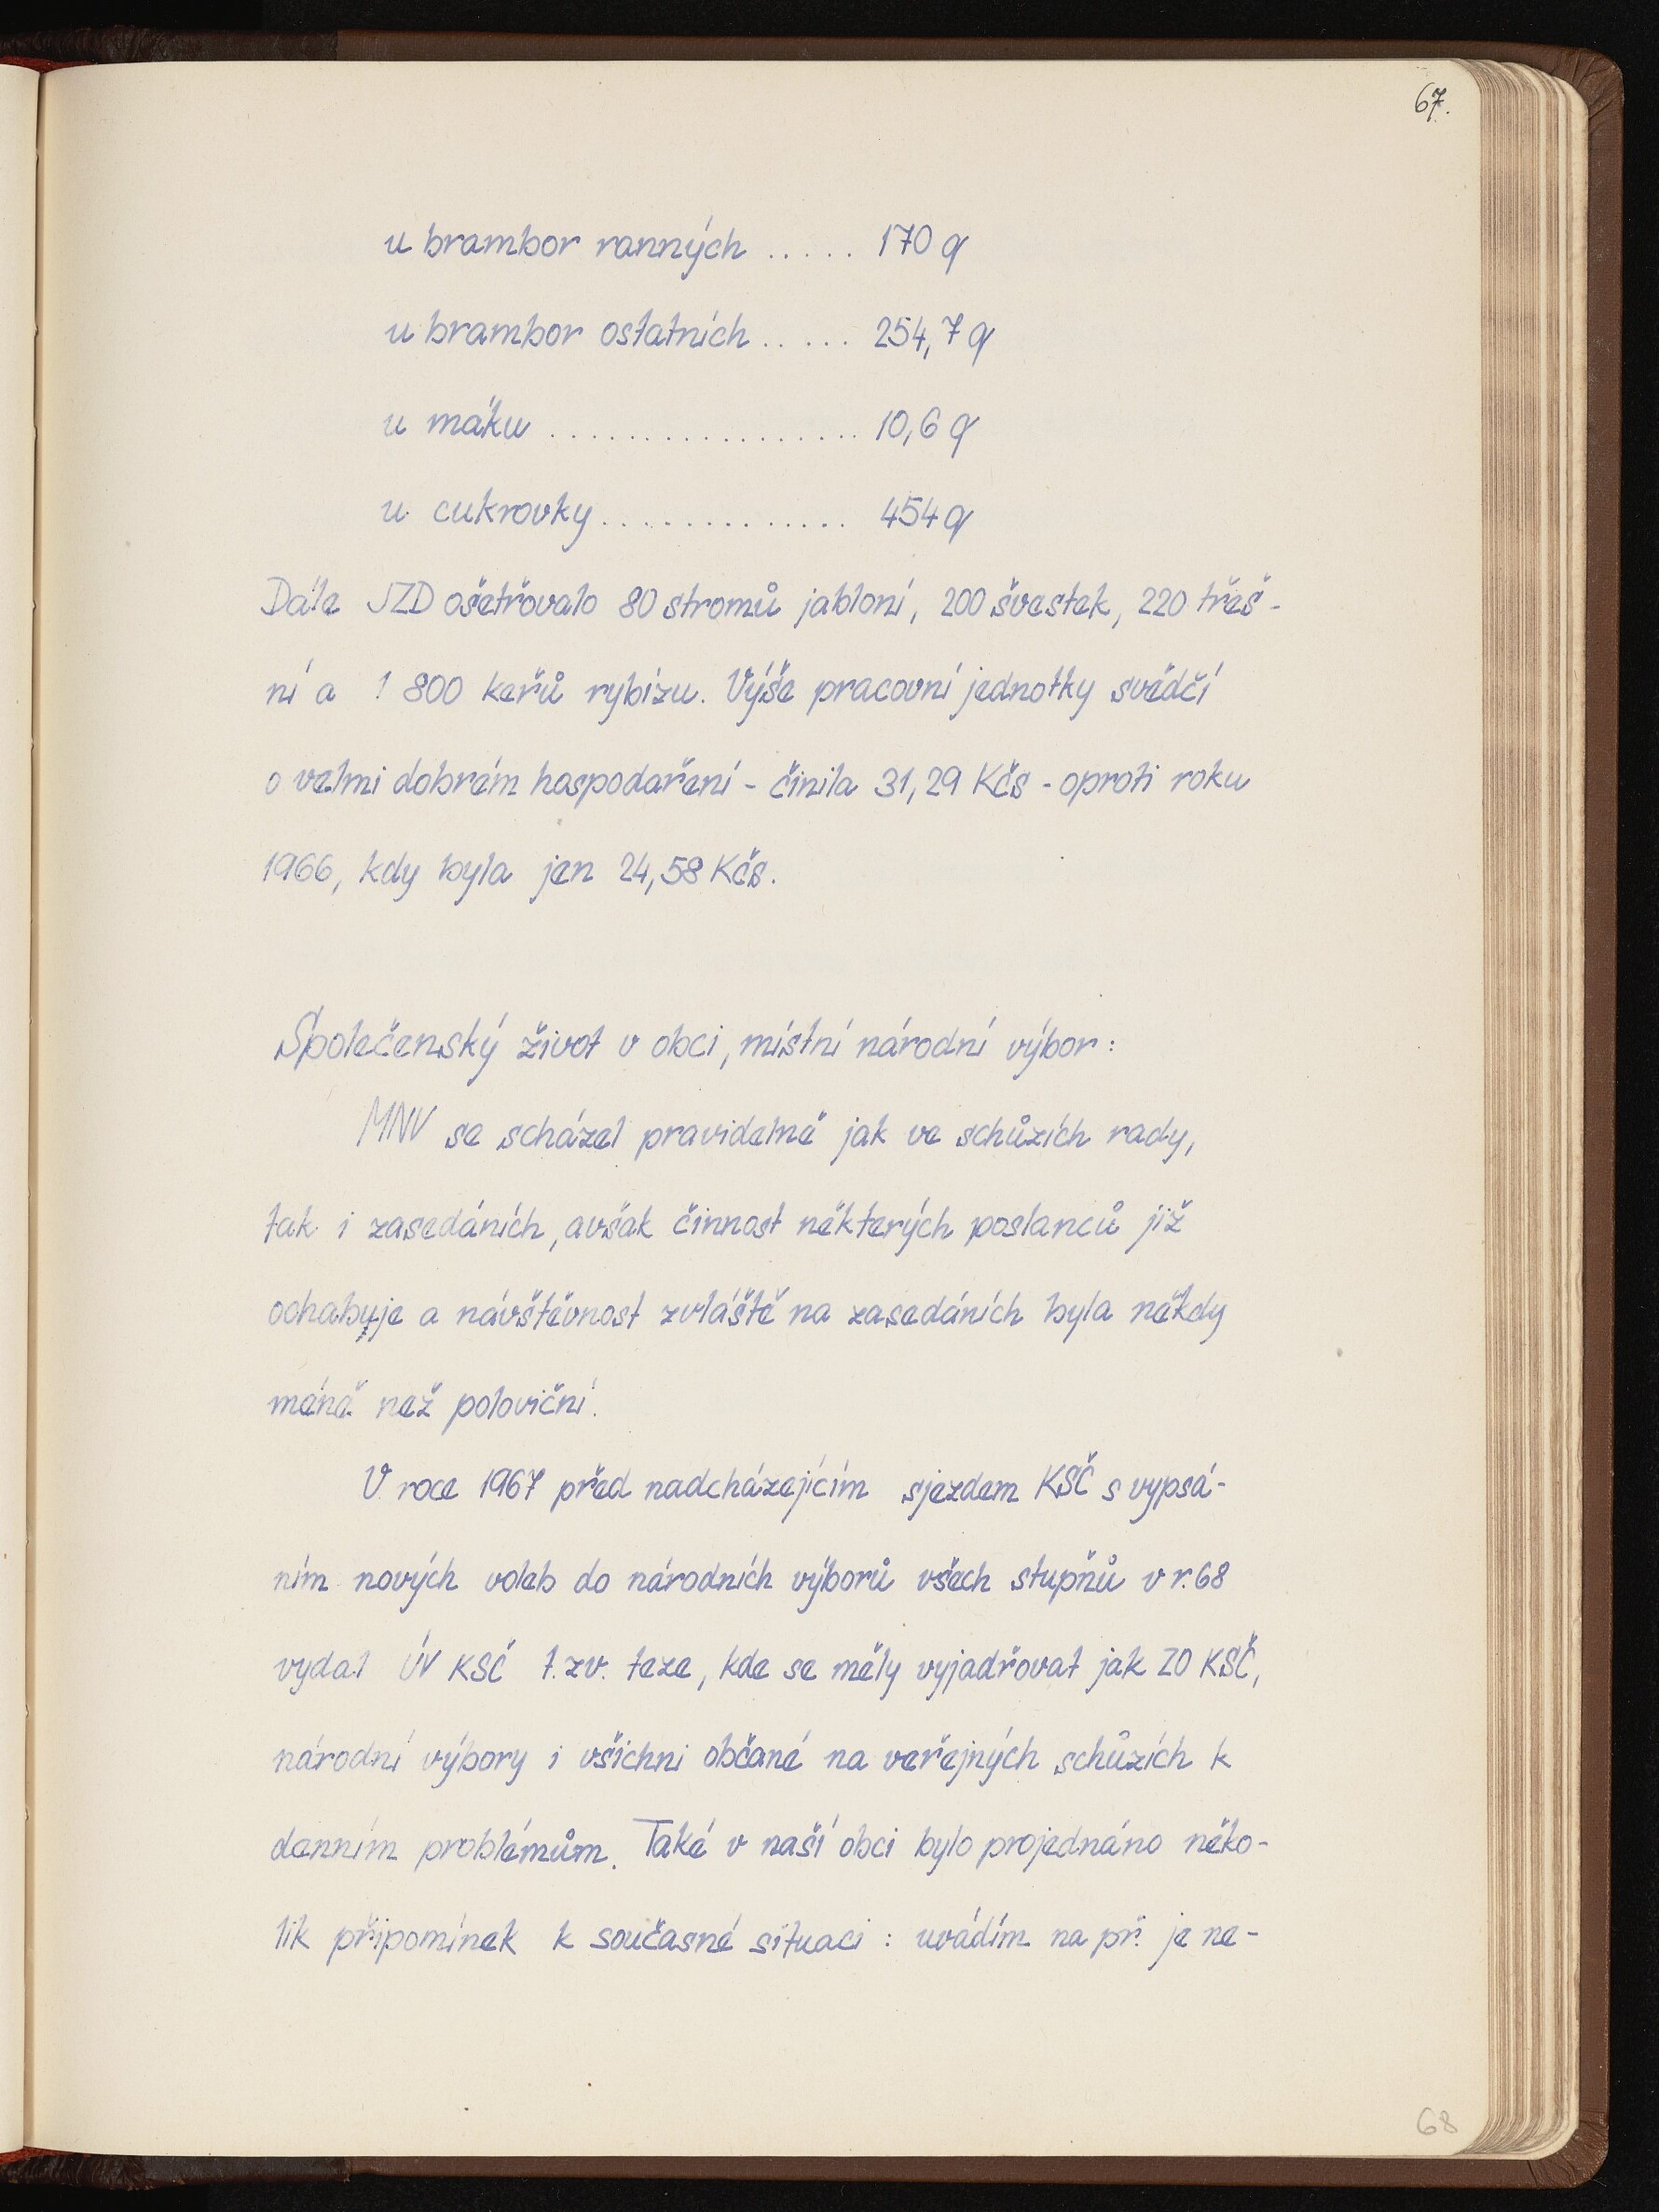 67.
u brambor ranných ..... 170 q
u brambor ostatních ..... 254,7 q
u máku .................. 10,6 q
u cukrovky .............. 454 q
Dále JZD ošetřovalo 80 stromů jabloní, 200 švestek, 220 třeš-
ní a 1 800 keřů rybízu. Výše pracovní jednotky svědčí
o velmi dobrém hospodaření - činila 31,29 Kčs - oproti roku
1966, kdy byla jen 24,58 Kčs.
Společenský život v obci, místní národní výbor:
MNV se scházel pravidelně jak ve schůzích rady,
tak i zasedáních, avšak činnost některých poslanců již
ochabuje a návštěvnost zvláště na zasedáních byla někdy
méně než poloviční.
V roce 1967 před nadcházejícím sjezdem KSČ s vypsá-
ním nových voleb do národních výborů všech stupňů v r. 68
vydal ÚV KSČ t. zv. teze, kde se měly vyjadřovat jak ZO KSČ,
národní výbory i všichni občané na veřejných schůzích k
denním problémům. Také v naší obci bylo projednáno něko-
lik připomínek k současné situaci : uvádím na př. je ne-
68